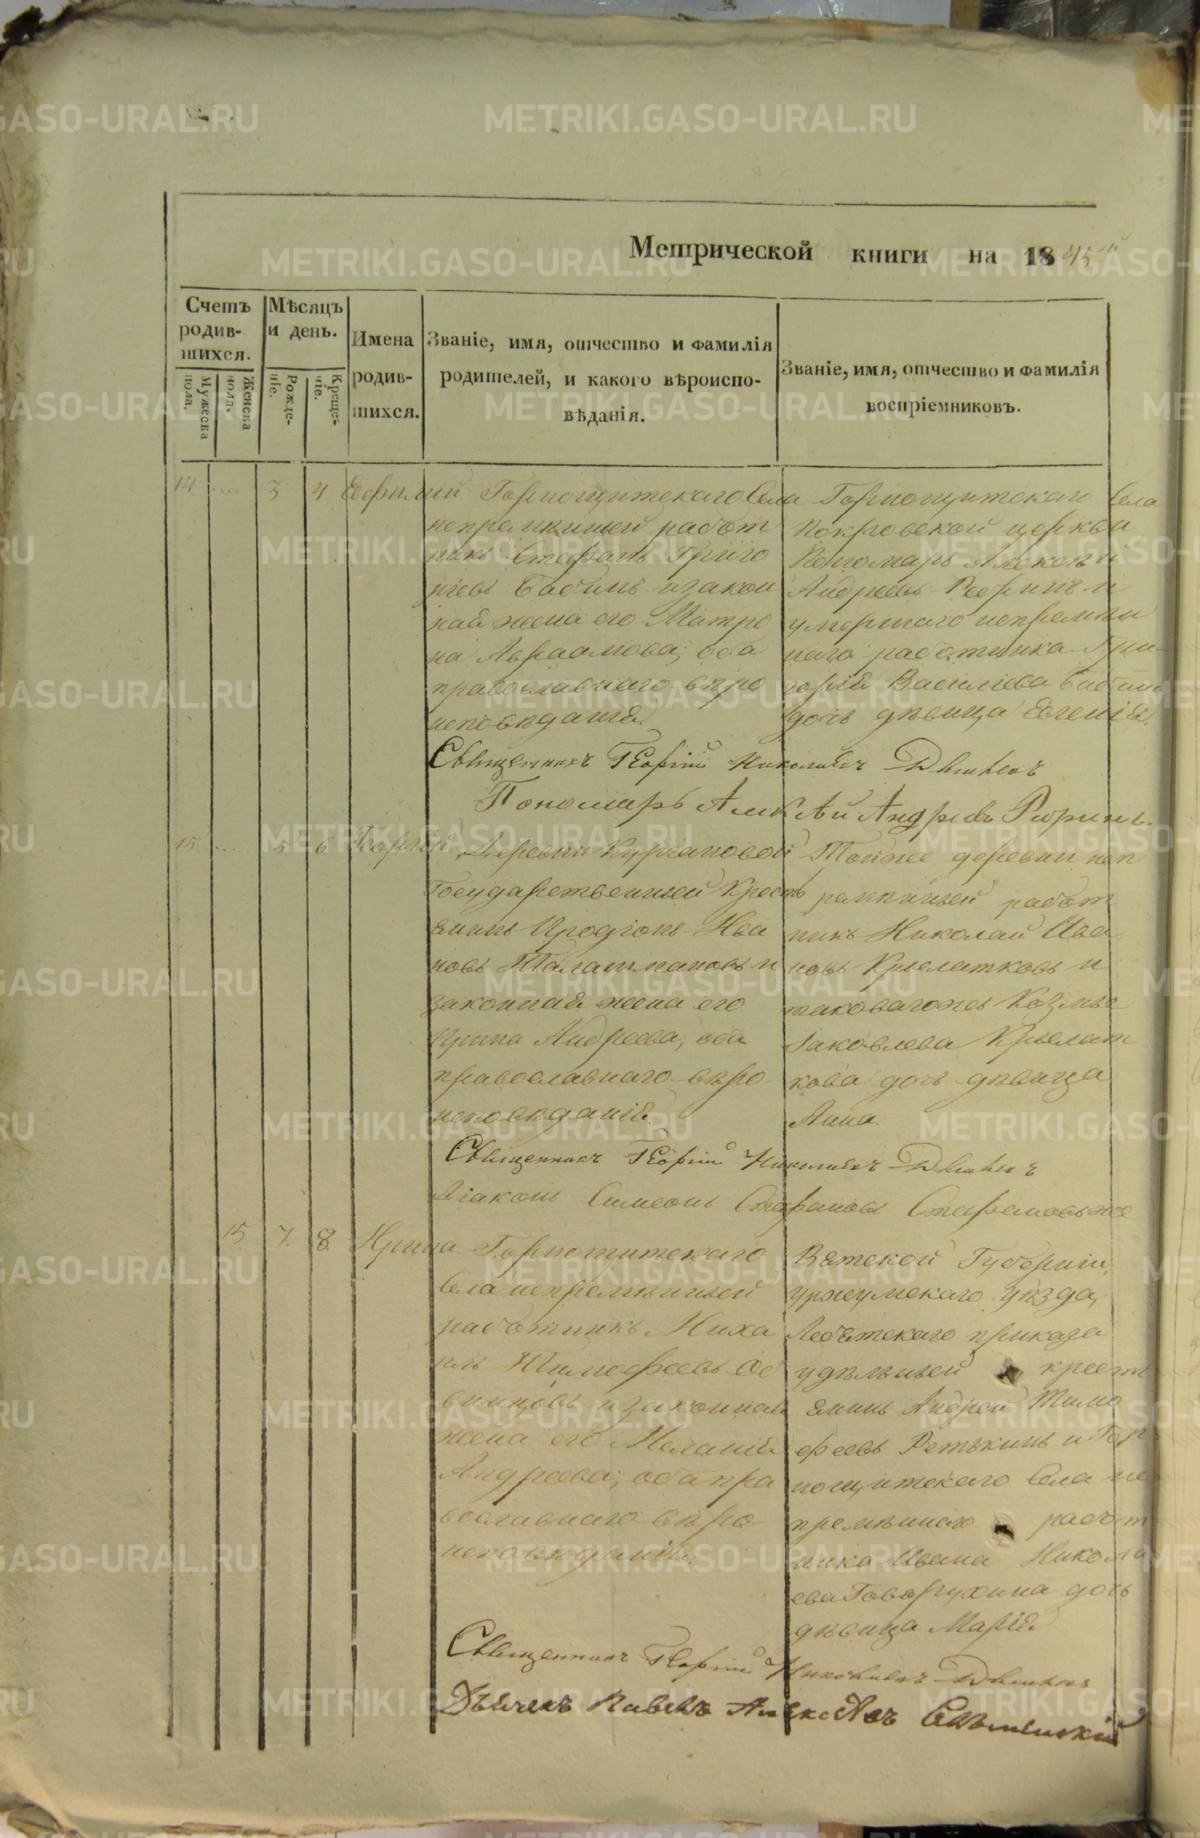 Метрической книги на 1845й
Счетъ родив-шихся.
Мужеска пола.
Женска пола.
Мѣсяцъ и день.
Рожде-ніе.
Креще-ніе.
Имена родив-шихся.
Званіе, имя, отчество и фамилія
родителей, и какого вѣроиспо-
вѣданія.
Званіе, имя, отчество и фамилія
воспріемниковъ.
14 .... 3 4 Евфимій
Горнощитскаго Села
непремѣнный работ
никъ Стефанъ Григо
рьевъ Бабинъ и закон
ная жена его Матро
на Авраамова; оба
православнаго вѣро
исповѣданія.
Горнощитскаго Села
Покровской церкви
Пономарь Алексѣй
Андреевъ и
умершаго непремѣн
наго работника Гри
горія Васильева Бабина
дочь дѣвица Евгенія.
Священникъ Георгій Николаевъ
Пономарь Алексѣй Андреевъ
15. .... 5 6 Георгій
Деревни Кургановой
Государственный Кресть
янинъ Иродіонъ Ива
новъ и
законная жена его
Ирина Андреева, оба
православнаго вѣро
исповѣданія
Тойже деревни неп
ремѣнный работ
никъ Николай Ива
новъ Крылатковъ и
таковагожъ Козьмы
Іаковлева Крылат
кова дочь дѣвица
Анна.
Священникъ Георгій Николаевъ
Діаконъ Симеонъ Стефановъ
15 7. 8. Ирина
Горнощитскаго
Села непремѣнный
работникъ Миха
илъ Тимофеевъ Ов
чинниковъ и законная
жена его Меланія
Андреева; оба пра
вославнаго вѣро
исповѣданія.
Вятской Губерніи,
Уржумскаго уѣзда,
приказа
удѣльный кресть
янинъ Андрей Тимо
феевъ и Гор
нощитскаго Села не
премѣннаго работ
ника Ивана Никола
ева Говорухина дочь
дѣвица Марія
Священникъ Георгій Николаевъ
Дьячекъ Павелъ Алексѣевъ
METRIKI.GASO-URAL.RU